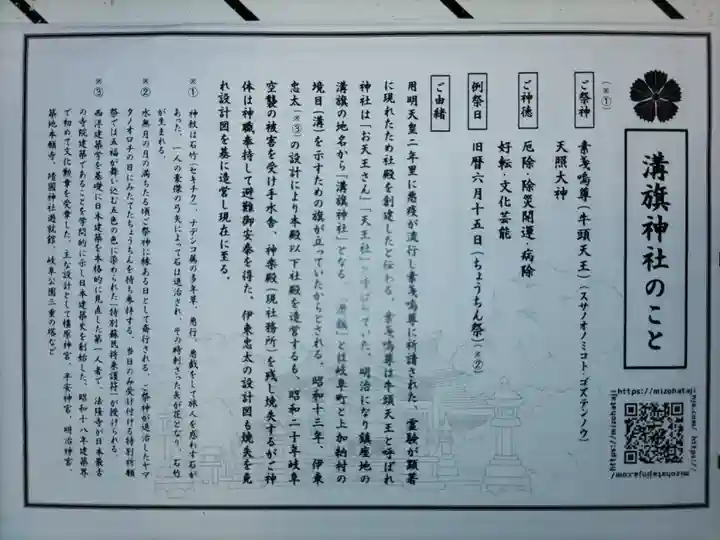 溝旗神社のこと
https://mizohataji
nja.com/ https://
mizohatajinja.com/
(※①)
ご祭神
素戔嗚尊(牛頭天王)(スサノオノミコト・ゴズテンノウ)
天照大神
ご神徳
厄除・除災開運・病除
好転・文化芸能
例祭日
旧暦六月十五日(ちょうちん祭)(※②)
ご由緒
用明天皇二年里に悪疫が流行し素戔嗚尊に祈請された、霊験が顕著
に現れたため社殿を創建したと伝わる。素戔嗚尊は牛頭天王と呼ばれ
神社は「お天王さん」「天王社」と呼ばれていた。明治になり鎮座地の
溝旗の地名から「溝旗神社」となる。「溝旗」とは岐阜町と上加納村の
境目(溝)を示すための旗が立っていたからとされる。昭和十三年、伊東
忠太(※③)の設計により本殿以下社殿を造営するも、昭和二十年岐阜
空襲の被害を受け手水舎、神楽殿(現社務所)を残し焼失するがご神
体は神職奉持して避難御安泰を得た、伊東忠太の設計図も焼失を免
れ設計図を基に造営し現在に至る。
※① 神紋は石竹(セキチク)、ナデシコ属の多年草、悪行、悪戯をして旅人を惑わす石が
あった、一人の豪傑の弓矢によって石は退治され、その時刺さった矢が花となり、石竹
が生まれる。
※② 水無月の月の満ちたる頃ご祭神に縁ある日として斎行される、ご祭神が退治したヤマ
タノオロチの目にみたてたちょうちんを持ち奉持する、当日のみ受け付ける特別祈願
祭では五福を舞い込む五色の色に染められた「特別蘇民将来護符」が授けられる。
※③ 西洋建築学を基礎に日本建築を本格的に見直した第一人者で、法隆寺が日本最古
の寺院建築であることを学問的に示し日本建築史を創始した、昭和十八年建築界
で初めて文化勲章を受章した、主な設計として橿原神宮、平安神宮、明治神宮、
築地本願寺、靖國神社遊就館・岐阜公園三重の塔など